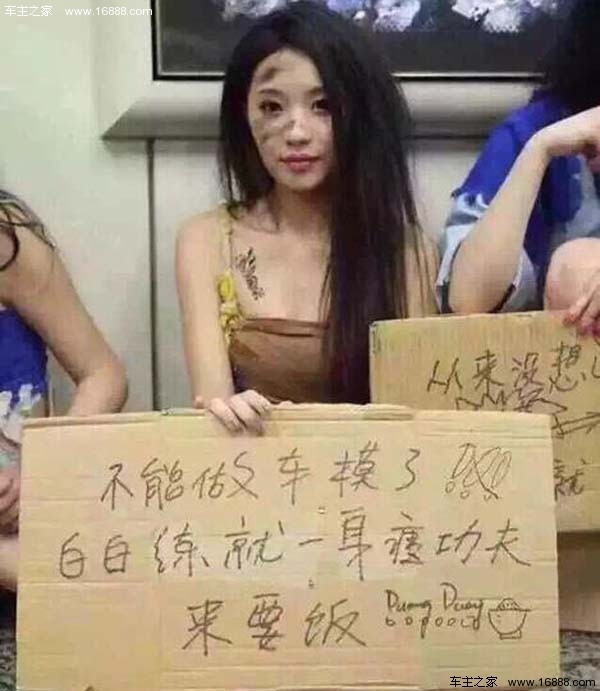 车主之家 www.16888.com
从来没想
就
不能做车模了!!!
白白练就一身瘦功夫
来要饭 Duang Duang
车主之家 www.16888.com